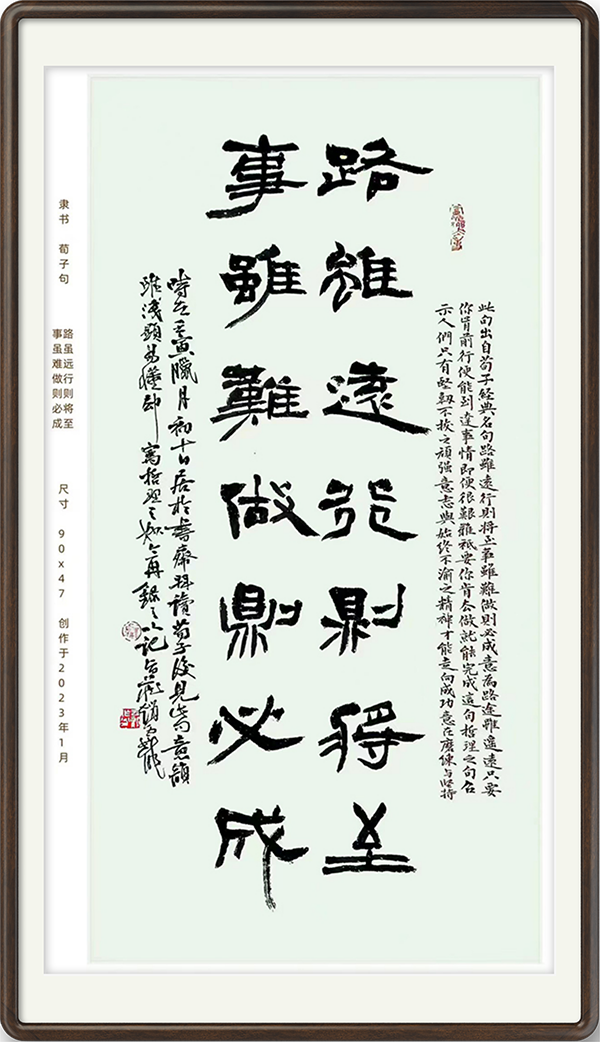 路雖遠行則將至
事雖難做則必成
此句出自荀子經典名句路雖遠行則將至事雖難做則必成意為路途雖遙遠只要
你肯前行便能到達事情即便很艱難祇要你肯去做就能完成這句哲理之句告
示人們只有堅韌不拔之頑強意志與始終不渝之精神才能走向成功意在磨煉与坚持
時在壬寅臘月初十日居於書齋拜讀荀子後見此句意韻
雖淺顯易懂卻寓哲理之
隶书 荀子句
路虽远行则将至
事虽难做则必成
尺寸 90x47 创作于2023年1月